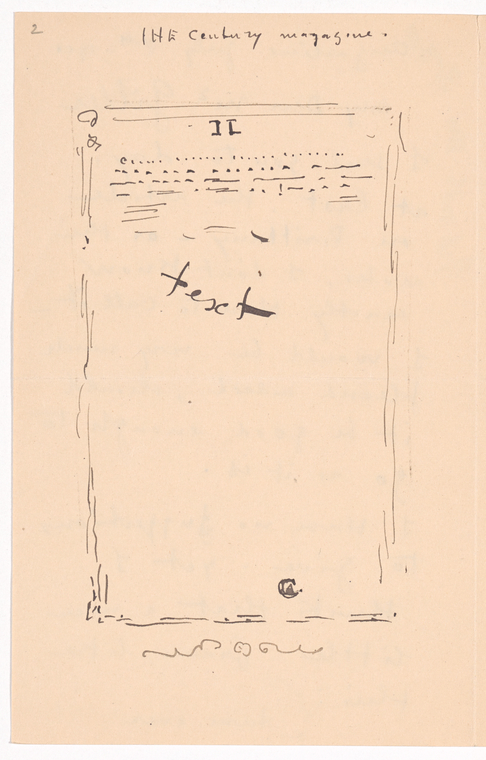 2
THE Century magazine.
II
text